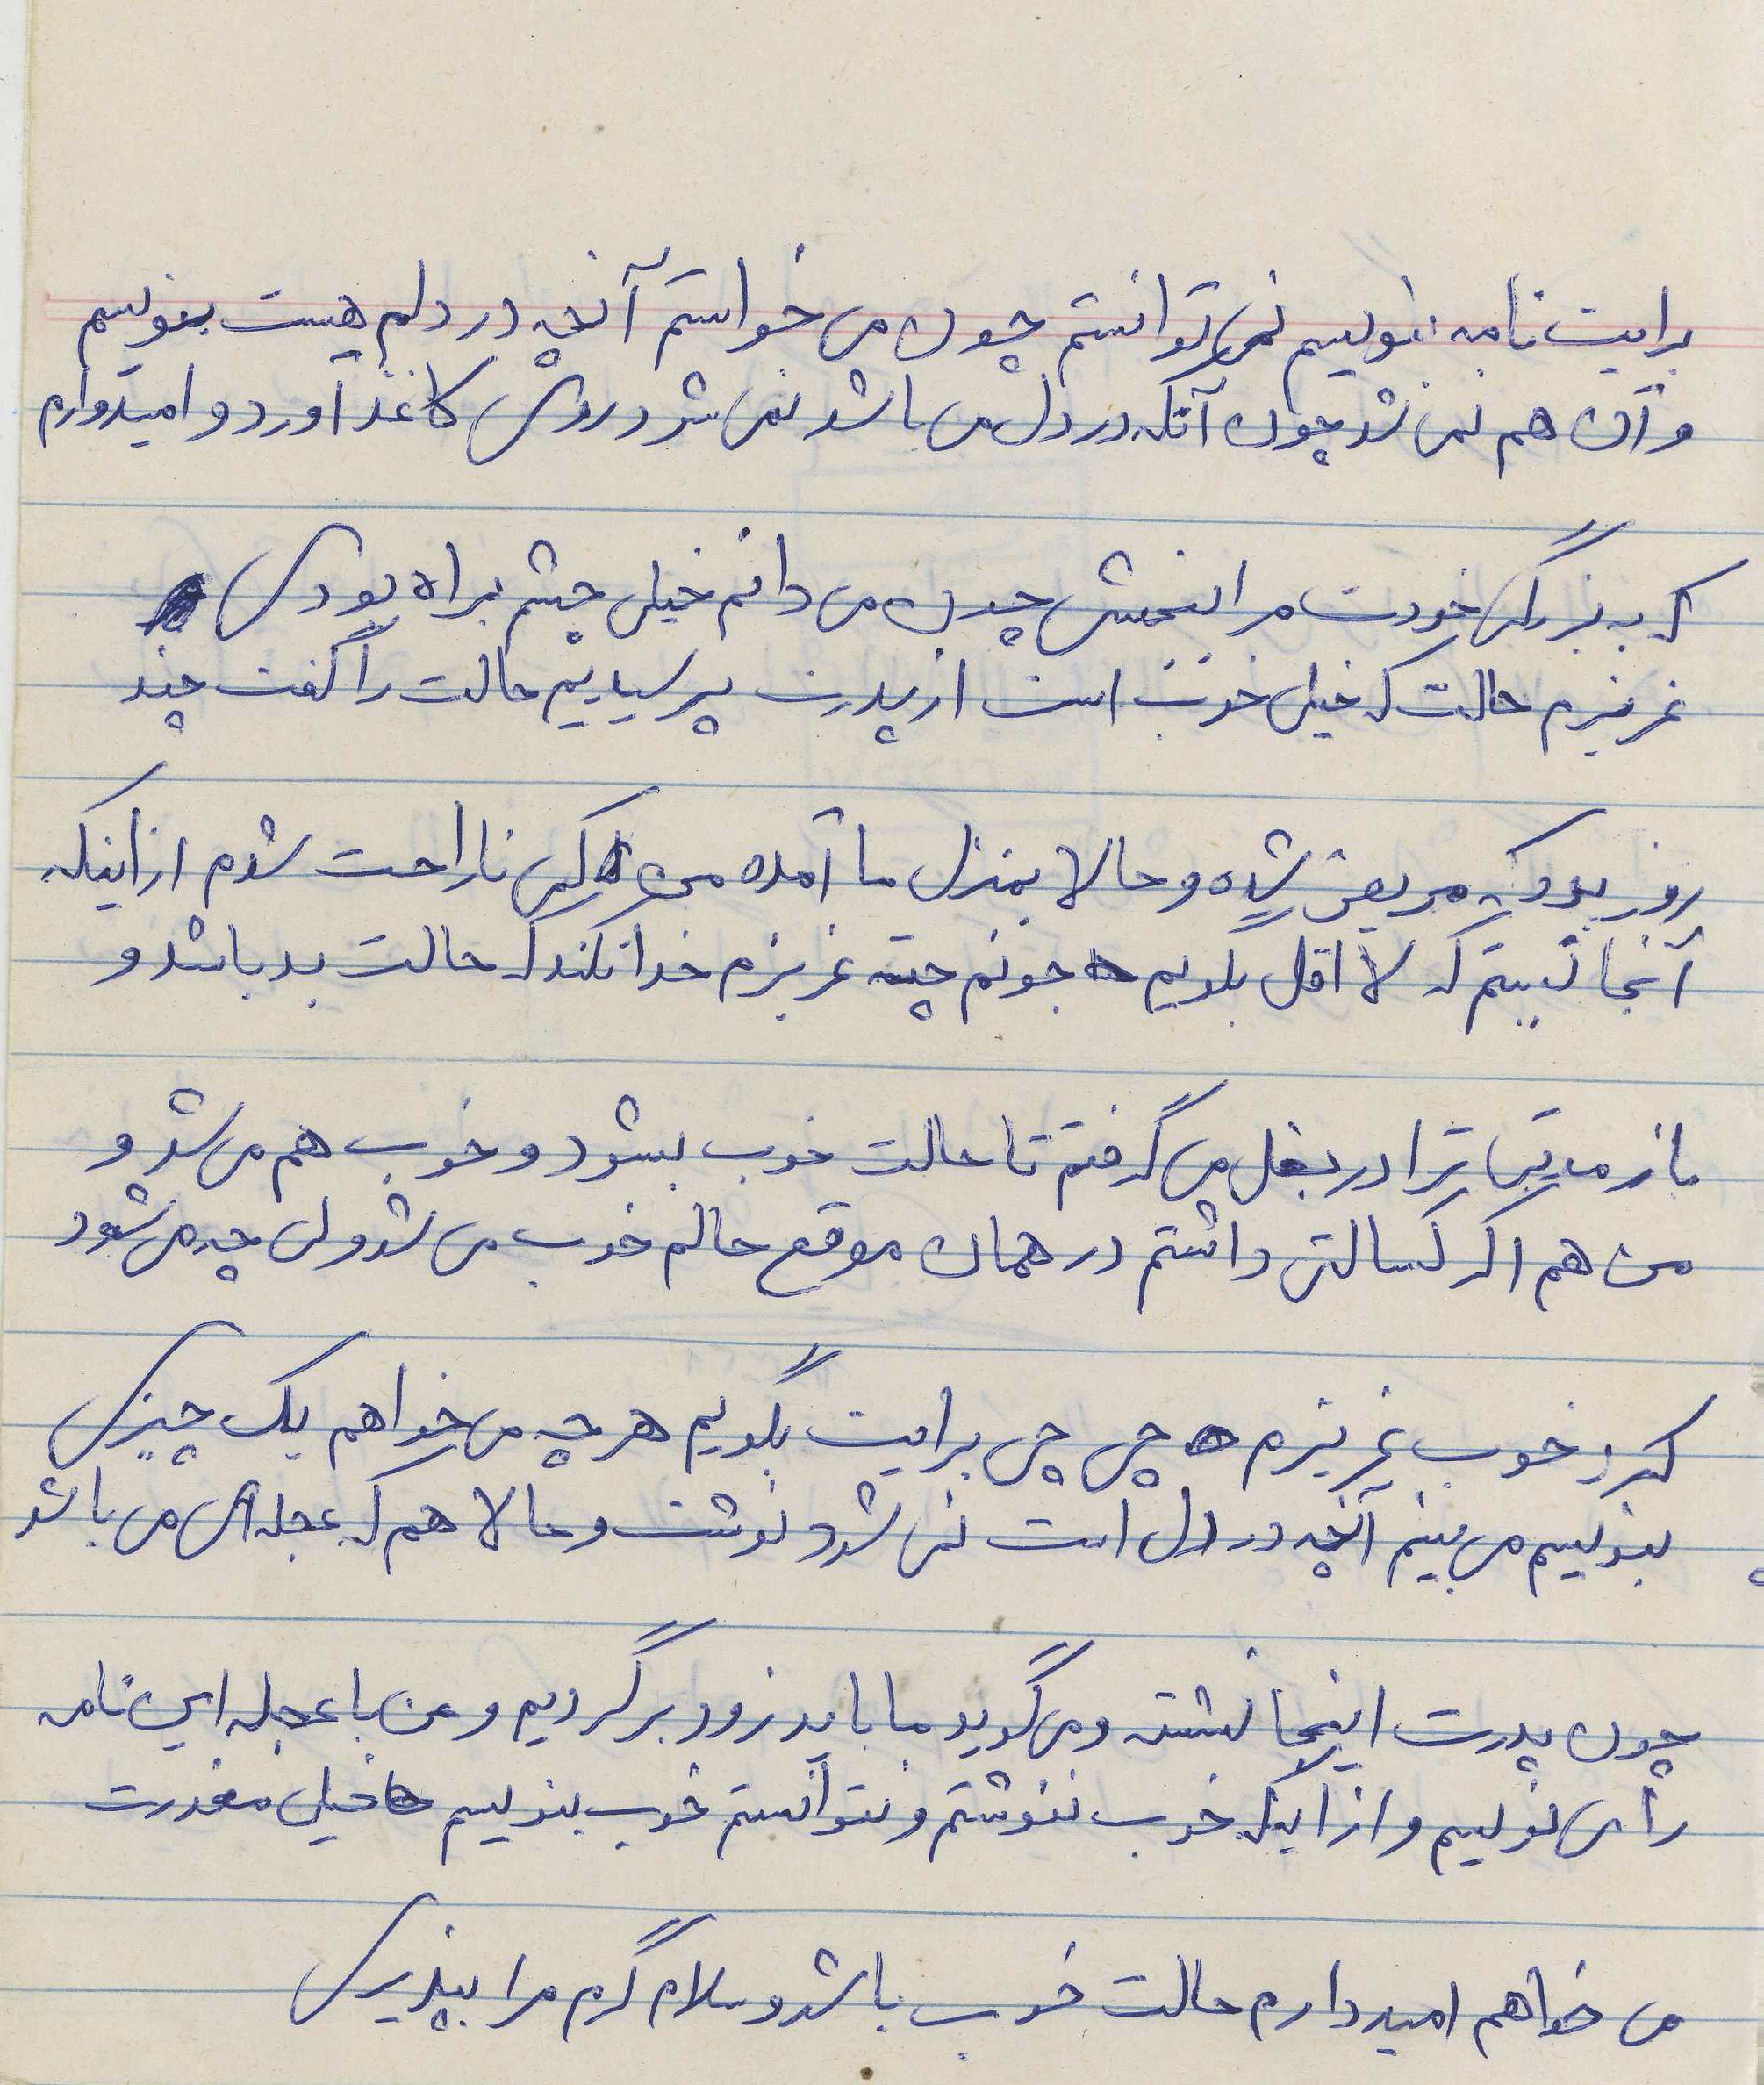 برایت نامه بنویسم نمی توانستم چون می خواستم آنچه در دلم هست بنویسم
و آن هم نمی شد چون آنکه در دل می باشد نمی شود روی کاغذ آورد و امیدوارم
که به بزرگی خودت مرا ببخشی چون می دانم خیلی چشم براه بودی
عزیزم حالت که خیلی خوب است از پدرت پرسیدیم حالت را گفت چند
روز بود که مریض شده و حالا بمنزل ما آمده من کمی ناراحت شدم از اینکه
آنجا نیستم که لااقل بگویم جونم چته عزیزم خدا نکند که حالت بد باشد و
باز مدتی ترا در بغل می گرفتم تا حالت خوب بشود و خوب هم می شد و
من هم اگر کسالتی داشتم در همان موقع حالم خوب می شد ولی چه می شود
کرد خوب عزیزم چی چی برایت بگویم هر چه می خواهم یک چیزی
بنویسم می بینم آنچه در دل است نمی شود نوشت و حالا هم که عجله ای می باشد
چون پدرت اینجا نشسته و می گوید ما باید زود برگردیم و من با عجله این نامه
را می نویسم و از اینکه خوب ننوشتم و نتوانستم خوب بنویسم خیلی معذرت
می خواهم امیدوارم حالت خوب باشد و سلام گرم مرا بپذیری